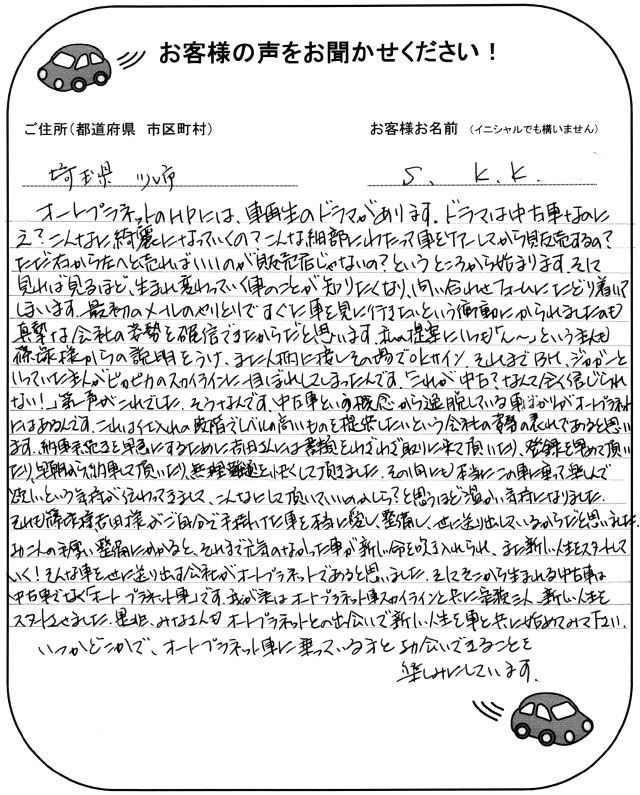 お客様の声をお聞かせください！
ご住所（都道府県　市区町村）
お客様お名前　（イニシャルでも構いません）
埼玉県
S. K.K.
オートプラネットのHPには、車再生のドラマがあります。ドラマは中古車なのに
え？こんなに綺麗になっていくの？こんな細部にわたって車を してから販売するの？
ただ右から左へと売ればいいのが販売店じゃないの？というところから始まります。そして
見れば見るほど、生まれ変わっていく車のことが知りたくなり、問い合わせフォームにたどり着いて
しまいます。最初のメールのやりとりですぐに車を見に行きたいという衝動にかられましたのも
真摯な会社の姿勢を確信できたからだと思います。私の提案にいつも「ん〜」という主人も
篠塚様からの説明をうけ、また人柄に接しその場でOKサイン。それまでBH、
いっていた主人がピカピカのスカイラインに一目ぼれしてしまったんです。「これが中古？なんて全く信じられ
ない！」第一声がこれでした。そうなんです、中古車という概念から逸脱している車ばかりがオートプラネット
にはあるんです。これは仕入れの段階でレベルの高いものを提供したいという会社の姿勢の表れであると思い
ます。納車 を早急にするために吉田さんには書類をわざわざ取りに来て頂いたり、登録を急いで頂い
たり、早朝から納車して頂いたり、無理難題を快くして頂きました。その間にも本当にこの車に乗って楽しんで
欲しいという気持が伝わってきまして、こんなにして頂いていいのかしら？と思うほど温かい気持になりました。
それも篠塚様吉田様がご自分で手掛けた車を本当に愛し、整備し、世に送り出しているからだと思いました。
お二人の手厚い整備にかかると、それまで元気のなかった車が新しい命を吹き入れられ、また新しい人生をスタートして
いく！そんな車を世に送り出す会社がオートプラネットであると思いました。そしてそこから生まれる中古車は
中古車でなく「オートプラネット車」です。我が家はオートプラネット車スカイラインと共に家族三人、新しい人生を
スタートさせました。是非、みなさんもオートプラネットとの出会いで新しい人生を車と共に始めてみて下さい。
いつかどこかで、オートプラネット車に乗っている方とお会いできることを
楽しみにしています。